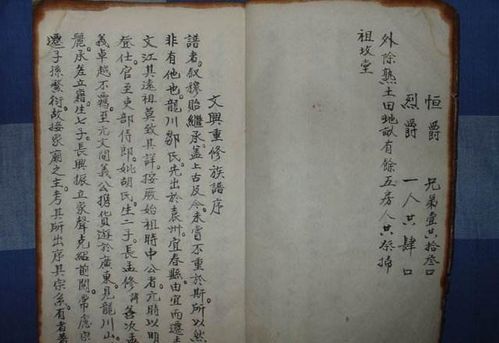 恒爵　兄弟壹共拾叁口
烈爵　一人共肆口
外除熟土田地畝有餘五房人共祭掃
祖坟堂
文興重修族譜序
譜者。叙穆貽繼承。盖上古及今未嘗不重於斯。所以然
非有他也。龍川鄒氏。先出於袁州。宜春縣由宜而遷
文江其遠祖莫致其詳。按厥始祖時中公者。元時以明
登仕。官至吏部侍郎。妣胡氏生二子。長孟修諱善次孟
義卓越不羈。至元文間義公携貨遊於廣東。見龍川山
麗。承差立籍。生七子。長興振立家聲。克紹前聞。常慮宗
遷子孫繁衍。故接家廟之主。考其所出。序其宗系。有者